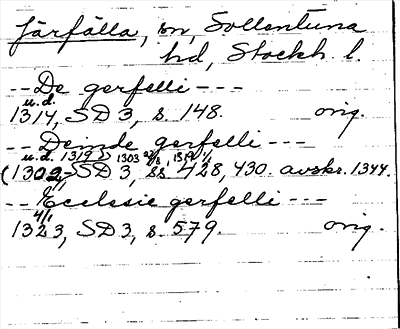 Järfälla, sn, Sollentuna
hd, Stockh. l.
-- De gerfelli ---
u.d.
1314, SD 3, s. 148. orig.
-- Deinde gerfelli ---
u.d. 1319 1303 1319
(1302 SD 3, ss 428, 430. avskr. 1344.
-- Ecclesie gerfelli ---
4/1
1323, SD 3, s. 579. orig.